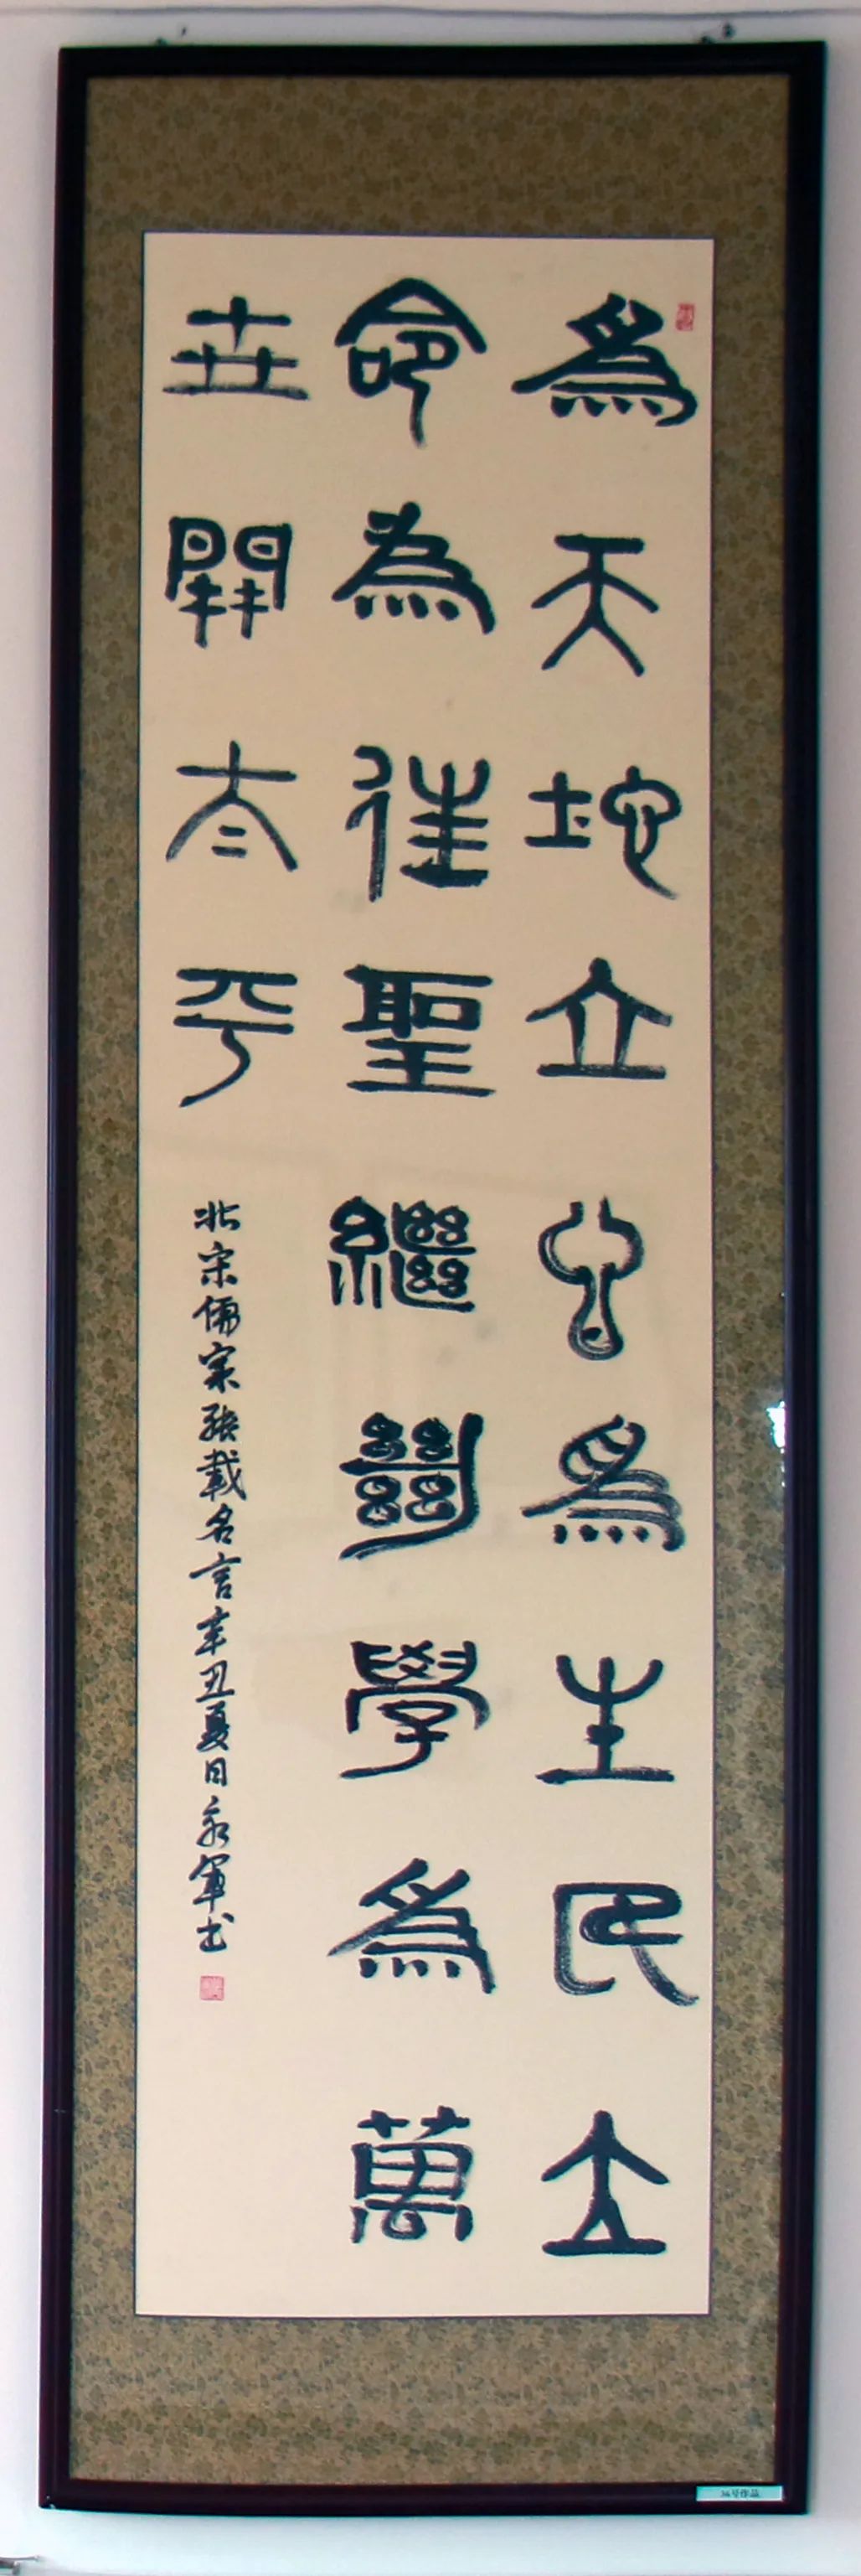 為天地立心為生民立
命為往聖繼絕學為萬
世開太平
北宋儒宗張載名言辛丑夏日永軍书
号作品